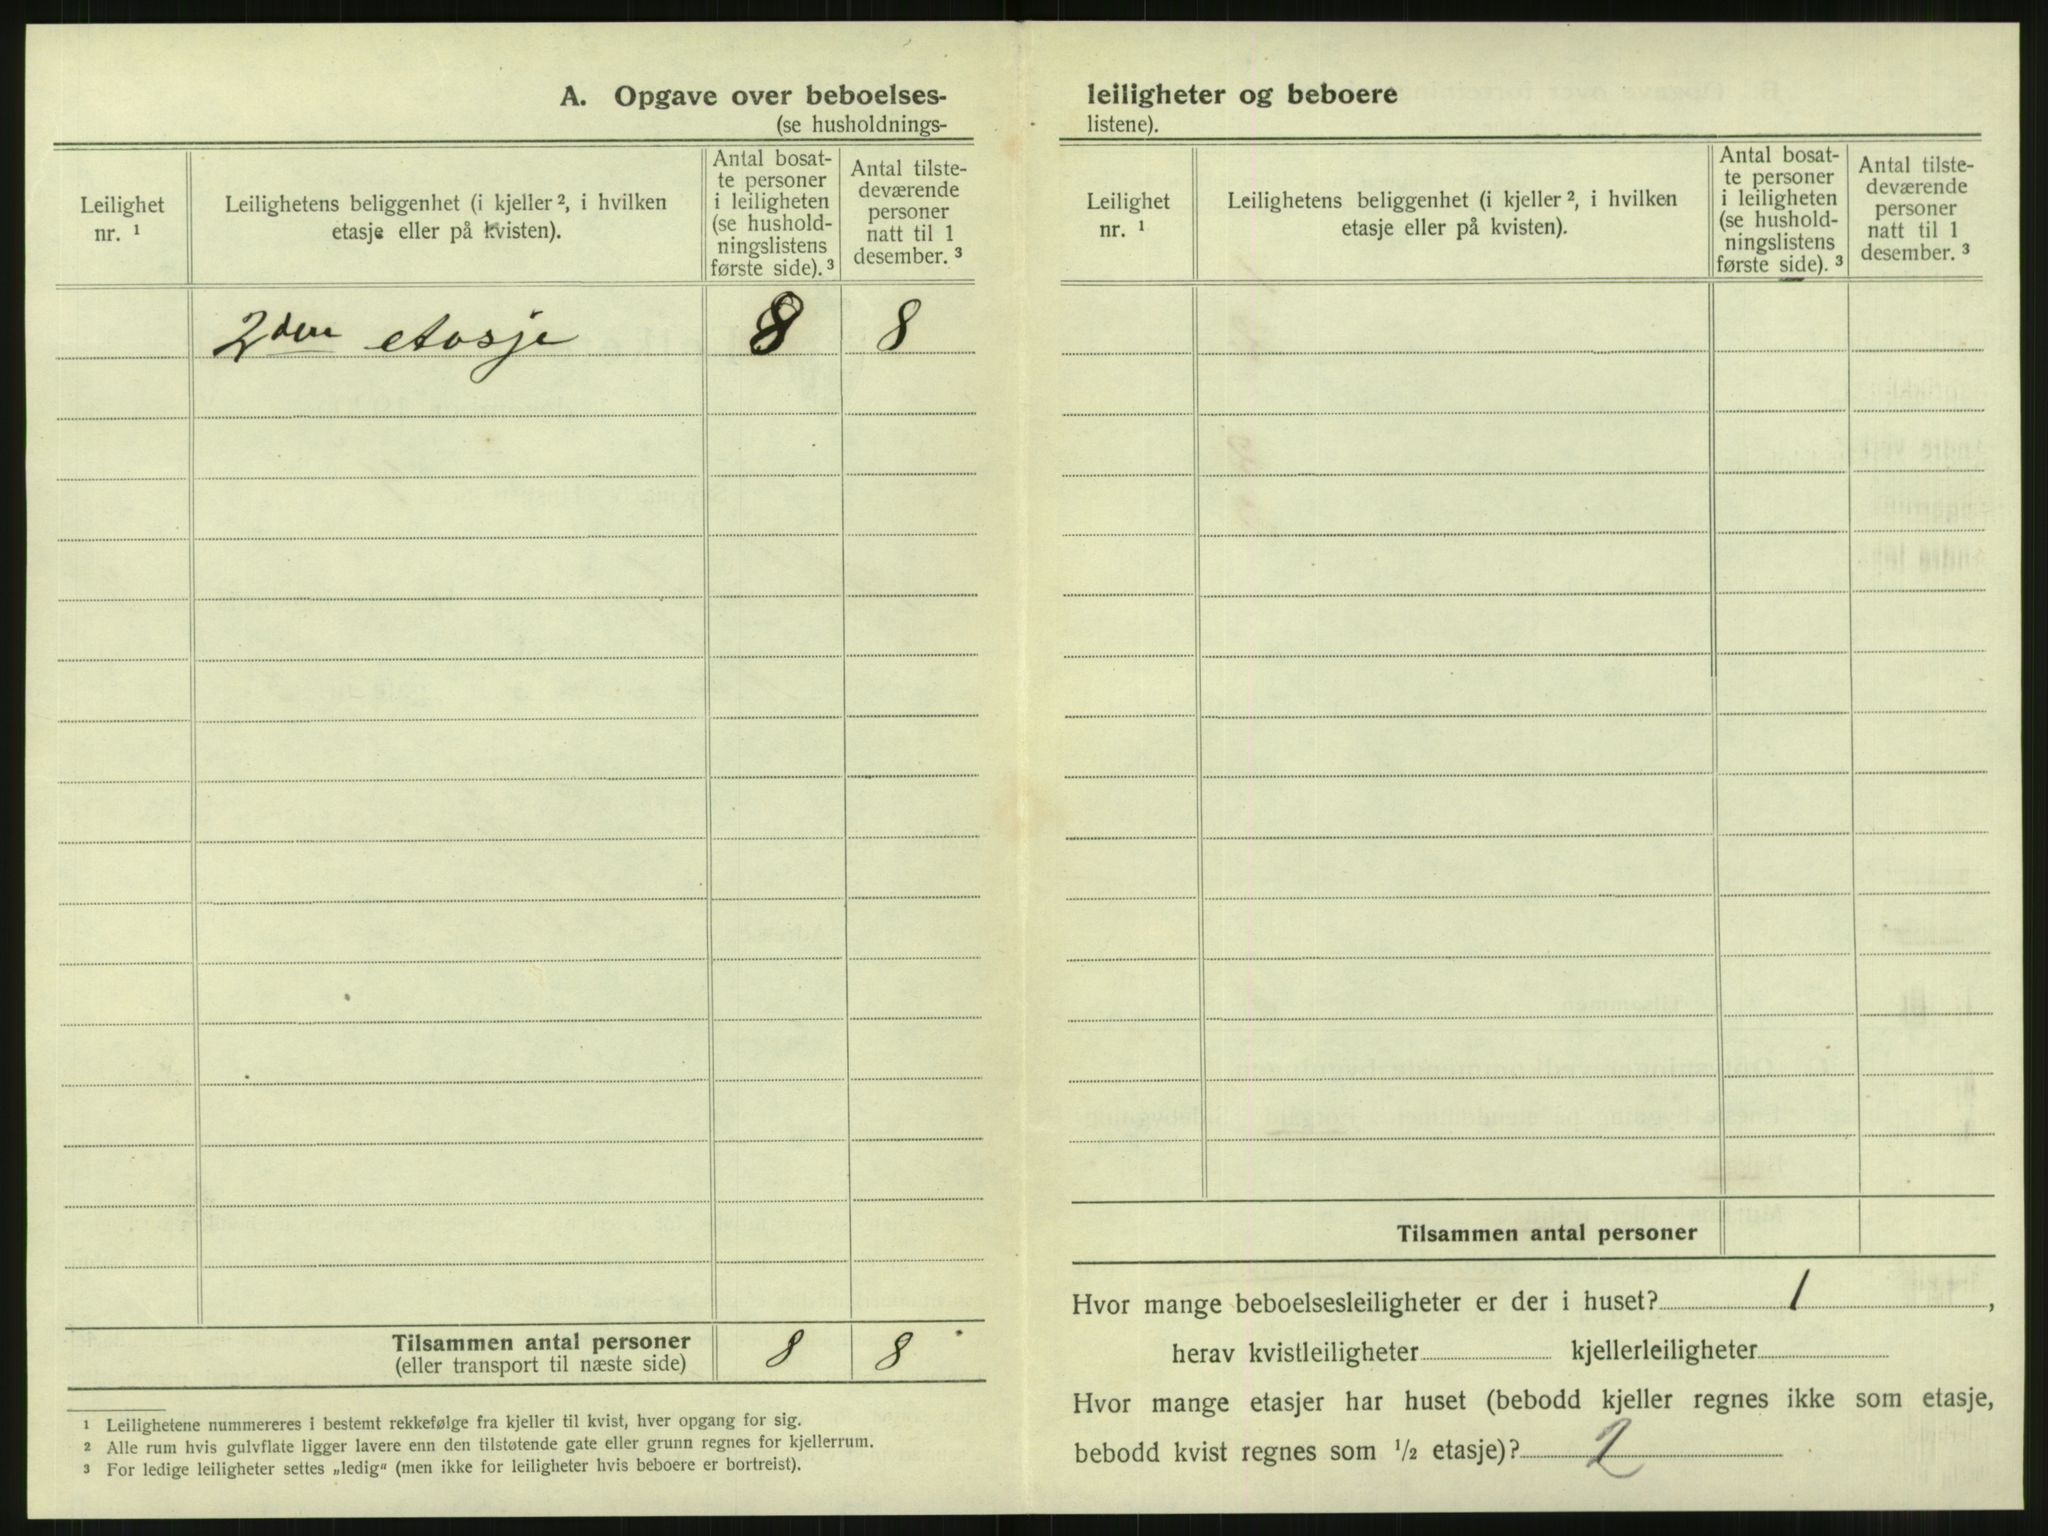 A. Opgave over beboelses-
(se husholdnings-
Leilighet
nr. ¹
Leilighetens beliggenhet (i kjeller ², i hvilken
etasje eller på kvisten).
Antal bosat-
te personer
i leiligheten
(se hushold-
ningslistens
første side). ³
Antal tilste-
deværende
personer
natt til 1
desember. ³
2den etasje 8 8
Tilsammen antal personer 8 8
(eller transport til næste side)
¹ Leilighetene nummereres i bestemt rekkefølge fra kjeller til kvist, hver opgang for sig.
² Alle rum hvis gulvflate ligger lavere enn den tilstøtende gate eller grunn regnes for kjellerrum.
³ For ledige leiligheter settes „ledig“ (men ikke for leiligheter hvis beboere er bortreist).
leiligheter og beboere
listene).
Leilighet
nr. ¹
Leilighetens beliggenhet (i kjeller ², i hvilken
etasje eller på kvisten).
Antal bosat-
te personer
i leiligheten
(se hushold-
ningslistens
første side). ³
Antal tilste-
deværende
personer
natt til 1
desember. ³
Tilsammen antal personer
Hvor mange beboelsesleiligheter er der i huset? 1,
herav kvistleiligheter kjellerleiligheter
Hvor mange etasjer har huset (bebodd kjeller regnes ikke som etasje,
bebodd kvist regnes som ½ etasje)? 2